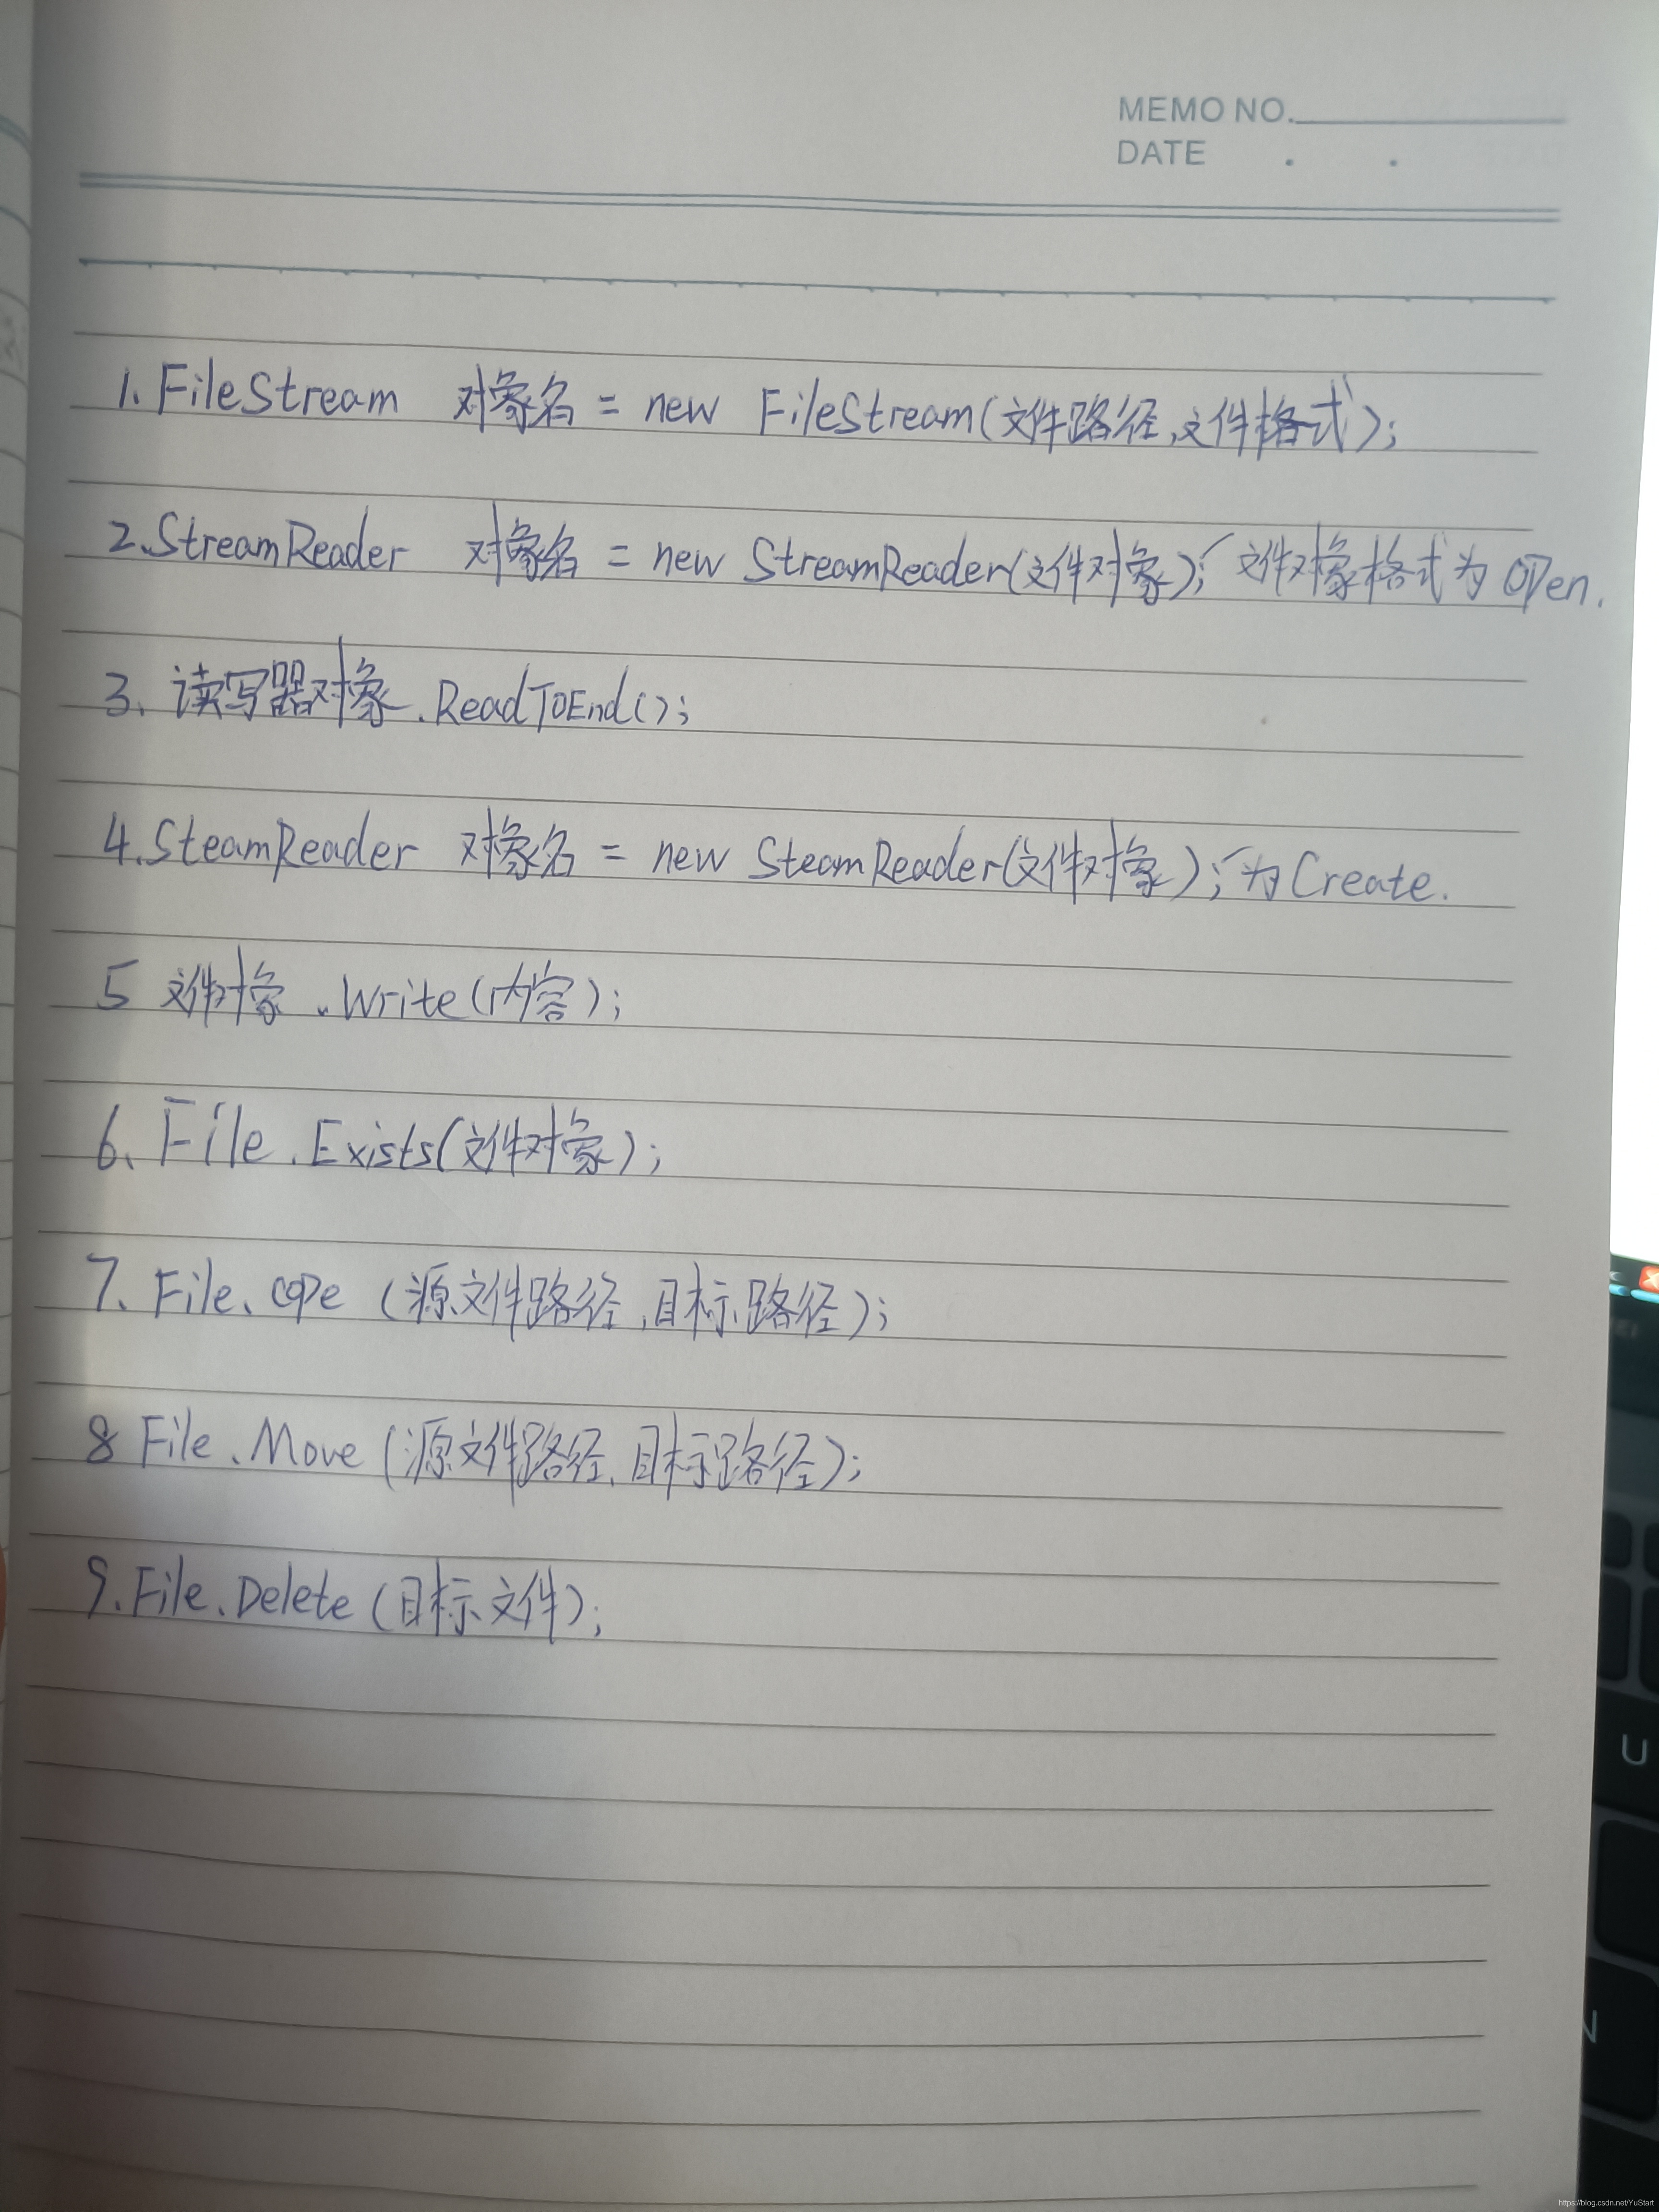 MEMO NO.
DATE . .
1.FileStream 对象名 = new FileStream(文件路径,文件格式);
2.StreamReader 对象名 = new StreamReader(文件对象); 文件对象格式为open.
3.读写器对象.ReadToEnd();
4.SteamReader 对象名 = new SteamReader(文件对象); 为Create.
5 文件对象.Write(内容);
6.File.Exists(文件对象);
7.File.cope (源文件路径,目标路径);
8 File.Move(源文件路径,目标路径);
9.File.Delete(目标文件);
U
N
https://blog.csdn.net/YuStart